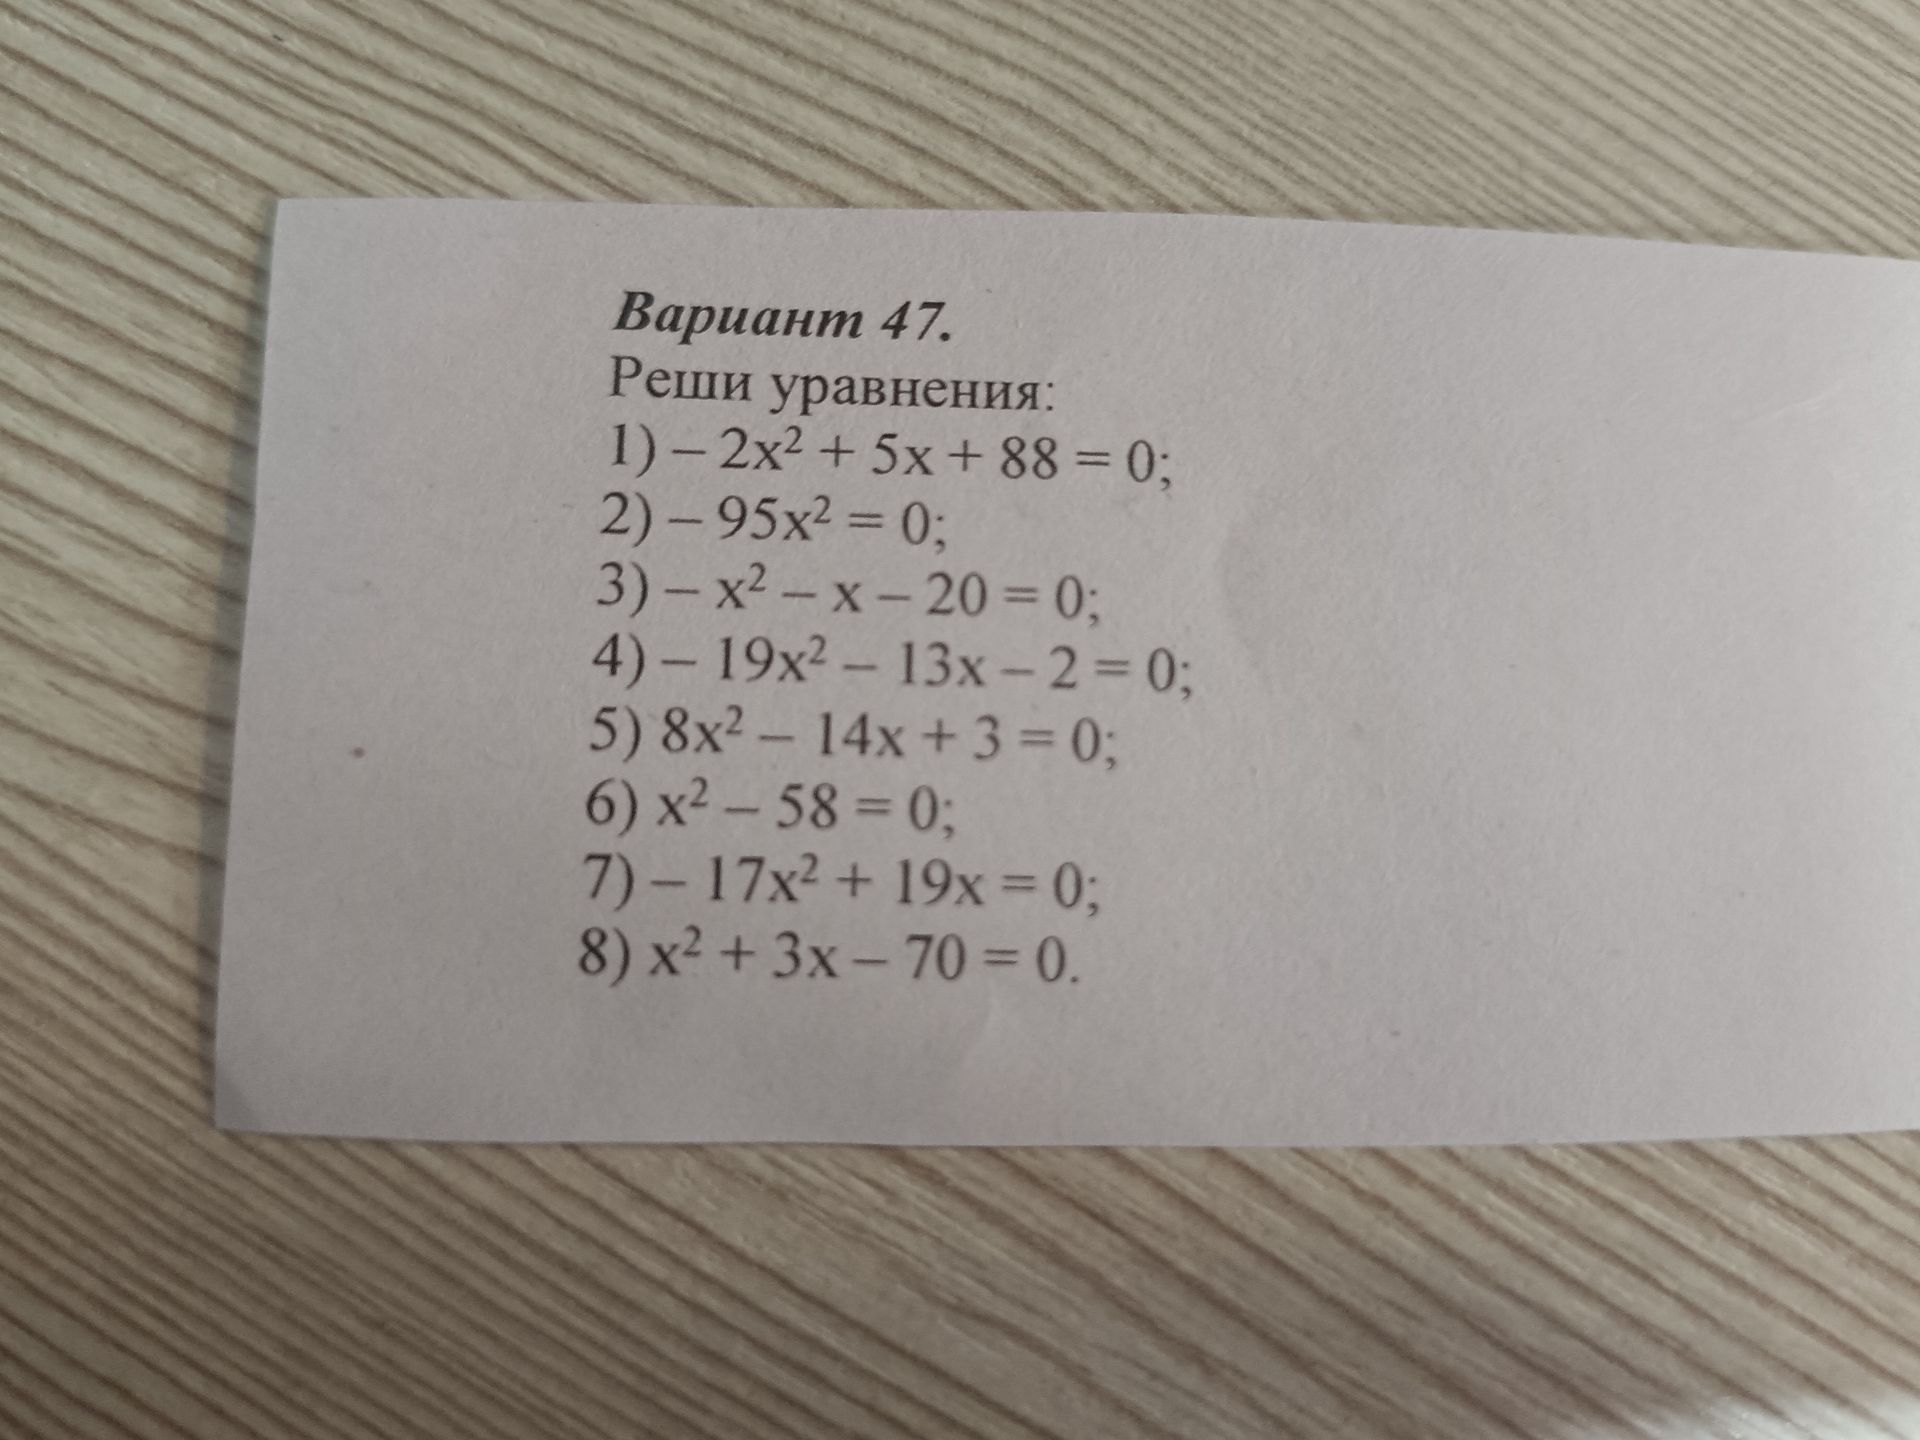 Вариант 47.
Реши уравнения:
1) – 2x² + 5x + 88 = 0;
2) – 95x² = 0;
3) – x² – x – 20 = 0;
4) – 19x² – 13x – 2 = 0;
5) 8x² – 14x + 3 = 0;
6) x² – 58 = 0;
7) – 17x² + 19x = 0;
8) x² + 3x – 70 = 0.